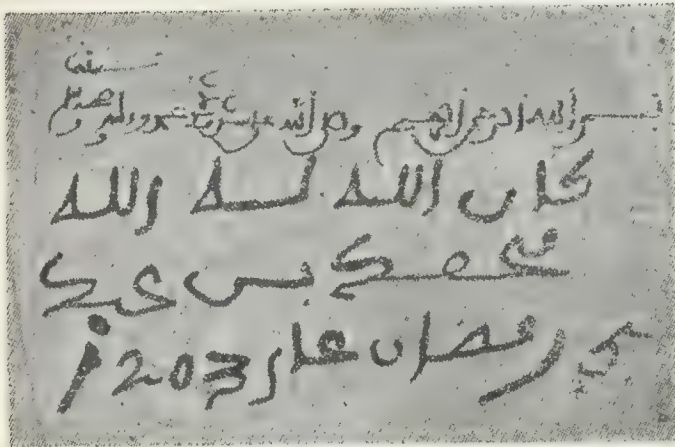 بسم الله الرحمن الرحيم وصلى الله على سيدنا محمد وآله وصحبه
كان الله له الله
محمد بن
في رمضان عام 1203